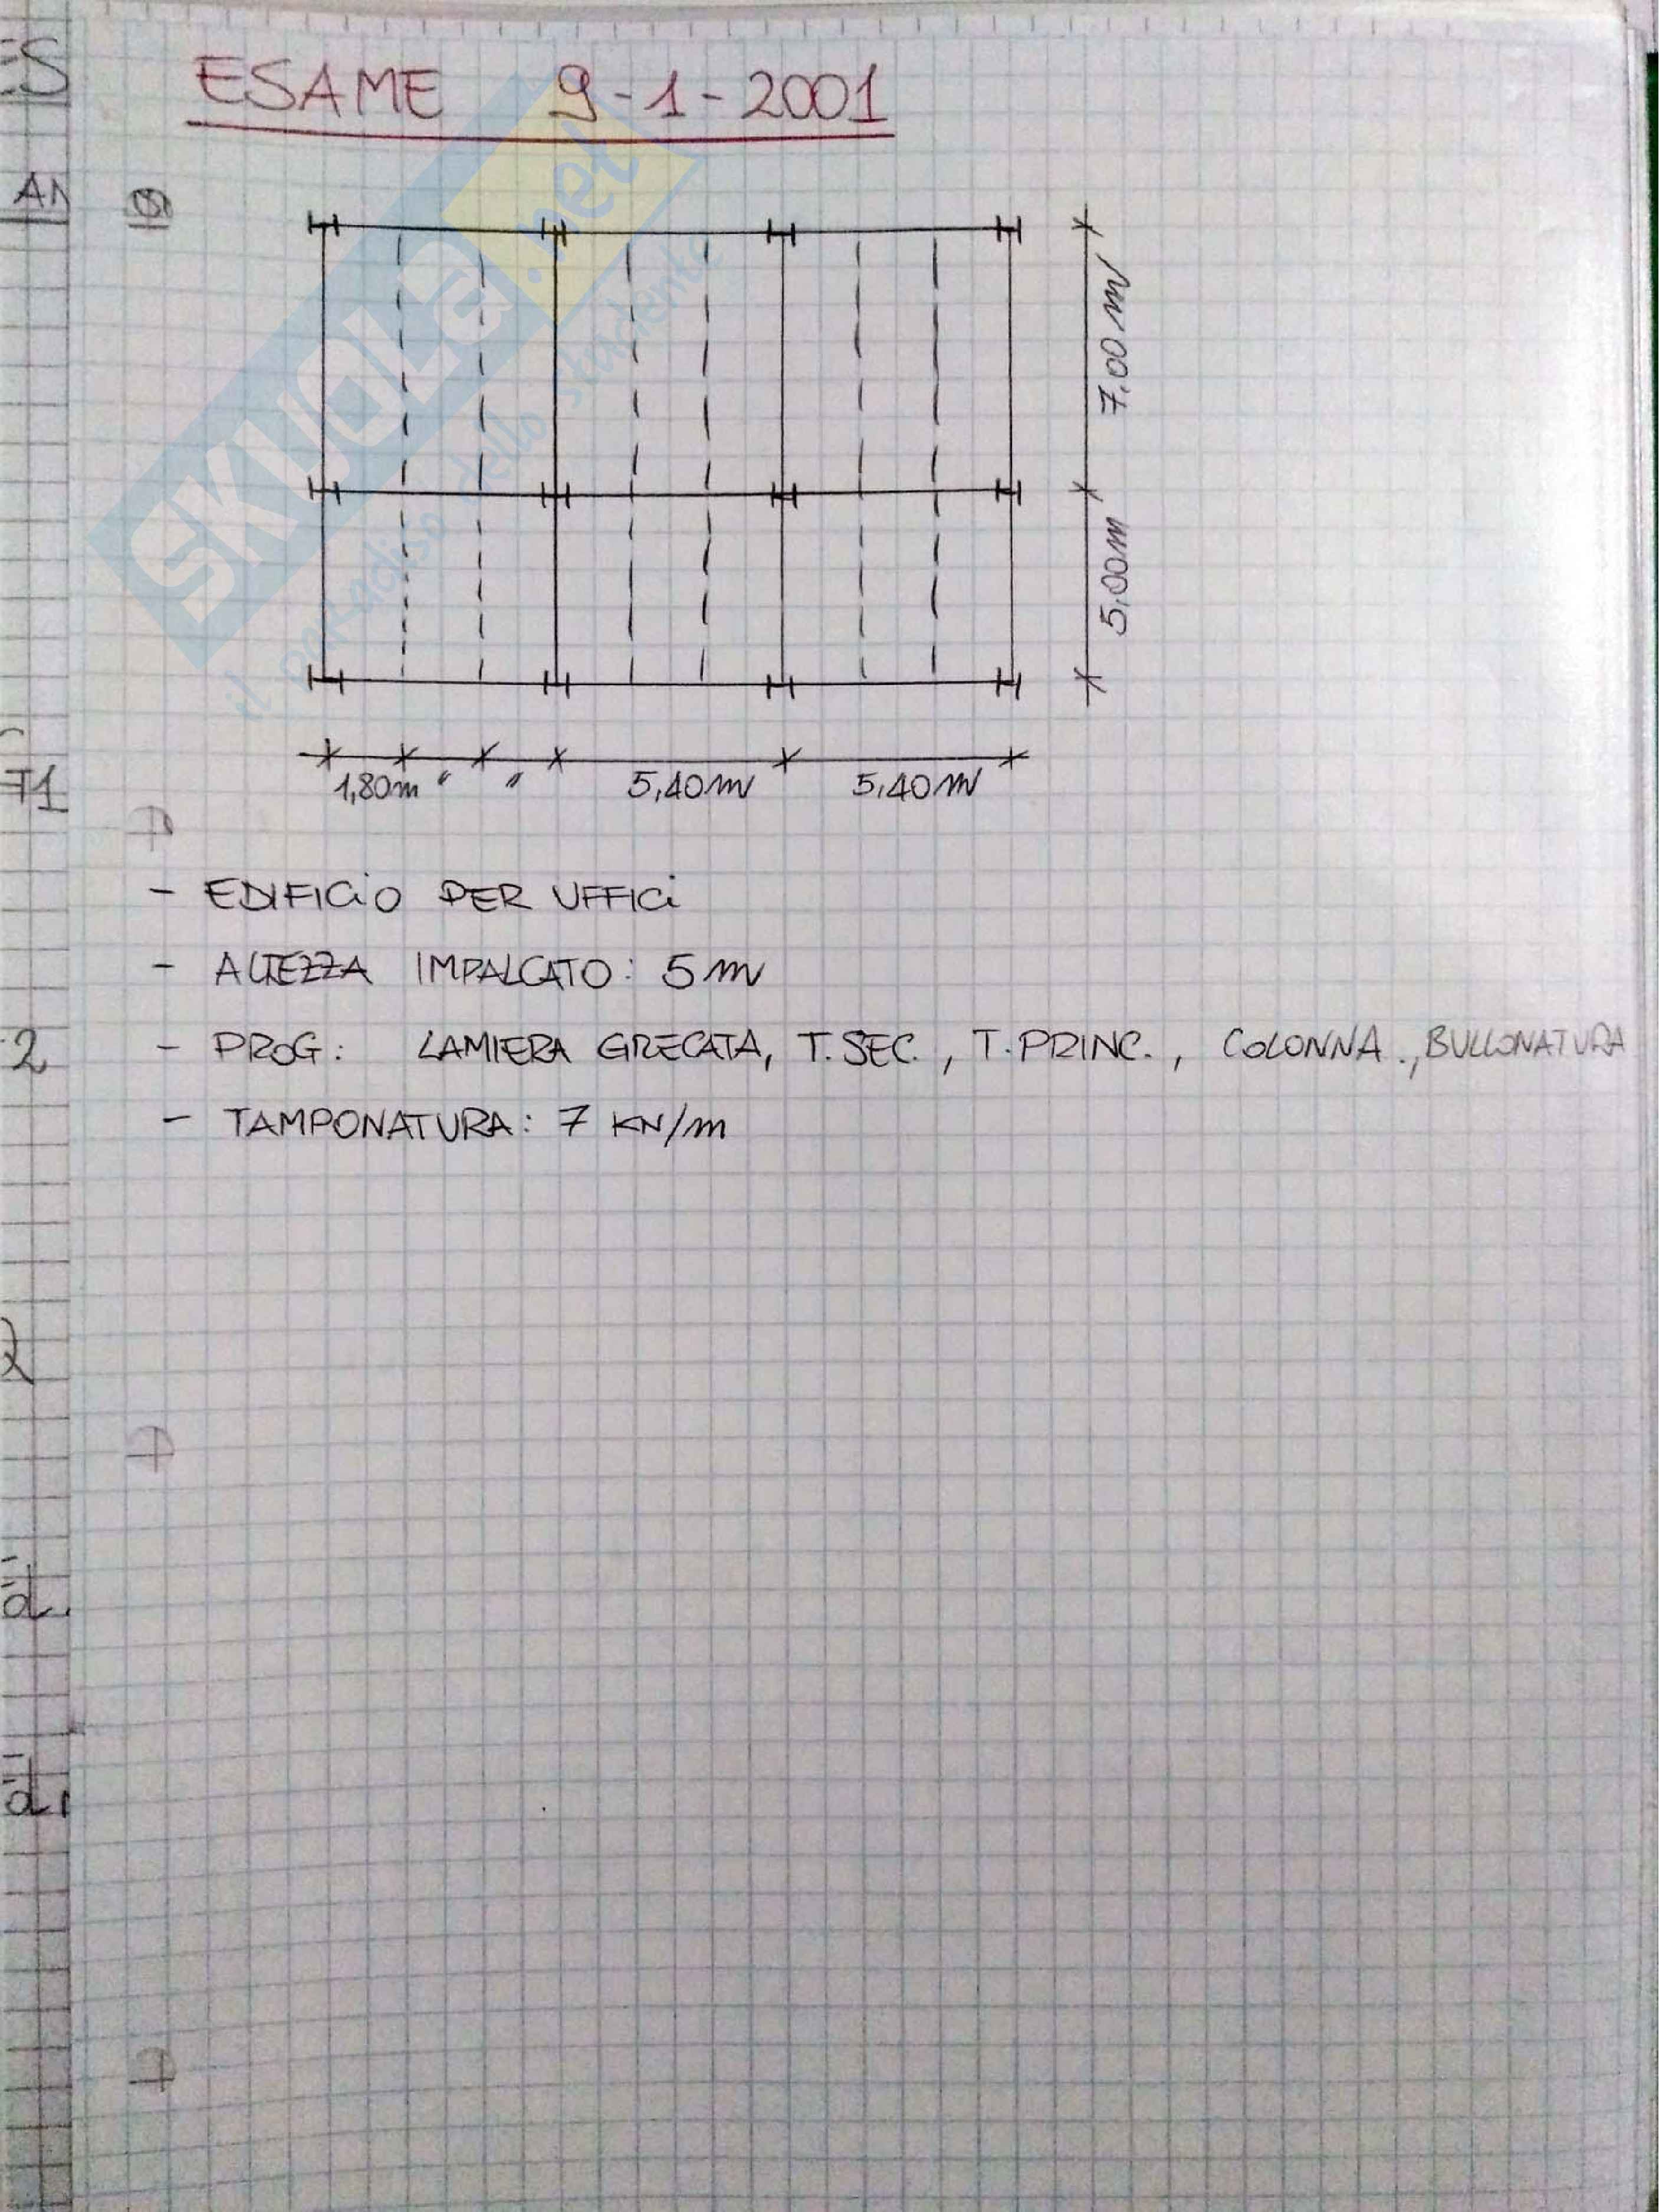 ES
ESAME 9-1-2001
AN
7,00 m
5,00 m
1,80 m " " 5,40 m 5,40 m
- EDIFICIO PER UFFICI
- ALTEZZA IMPALCATO: 5 m
- PROG: LAMIERA GRECATA, T. SEC., T. PRINC., COLONNA., BULLONATURA
2
- TAMPONATURA: 7 KN/m
SKUOLA.net
il paradiso dello studente